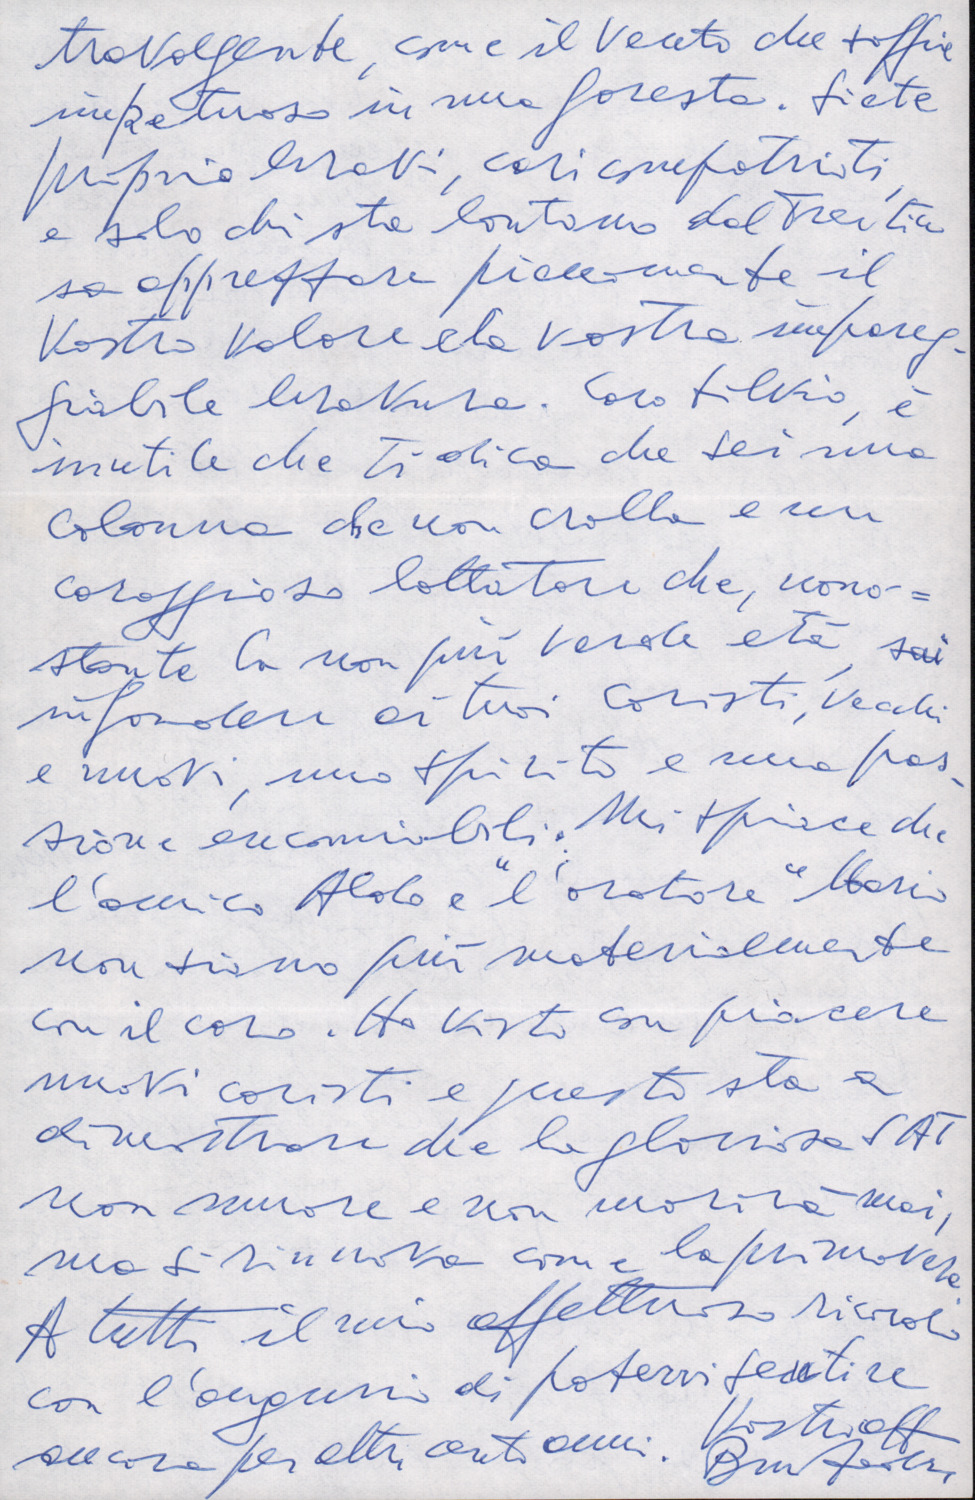 travolgente, come il vento che soffia
impetuoso in una foresta. Siete
proprio bravi, cari compatrioti,
e solo chi sta lontano dal Trentino
sa apprezzare pienamente il
Vostro valore e la vostra impareg-
giabile bravura. Caro Silvio, è
inutile che Ti dica che sei una
colonna che non crolla e un
coraggioso lottatore che, nono=
stante la non più verde età, sai
infondere ai tuoi coristi, vecchi
e nuovi, uno spirito e una pas-
sione encomiabili. Mi spiace che
l'amico Aldo e "l'oratore" Mario
non siano più materialmente
con il coro. Ho visto con piacere
nuovi coristi e questo sta a
dimostrare che la gloriosa SAT
non muore e non morirà mai,
ma si rinnova come la primavera.
A tutti il mio affettuoso ricordo
con l'augurio di potervi sentire
ancora per altri cento anni. Vostro aff